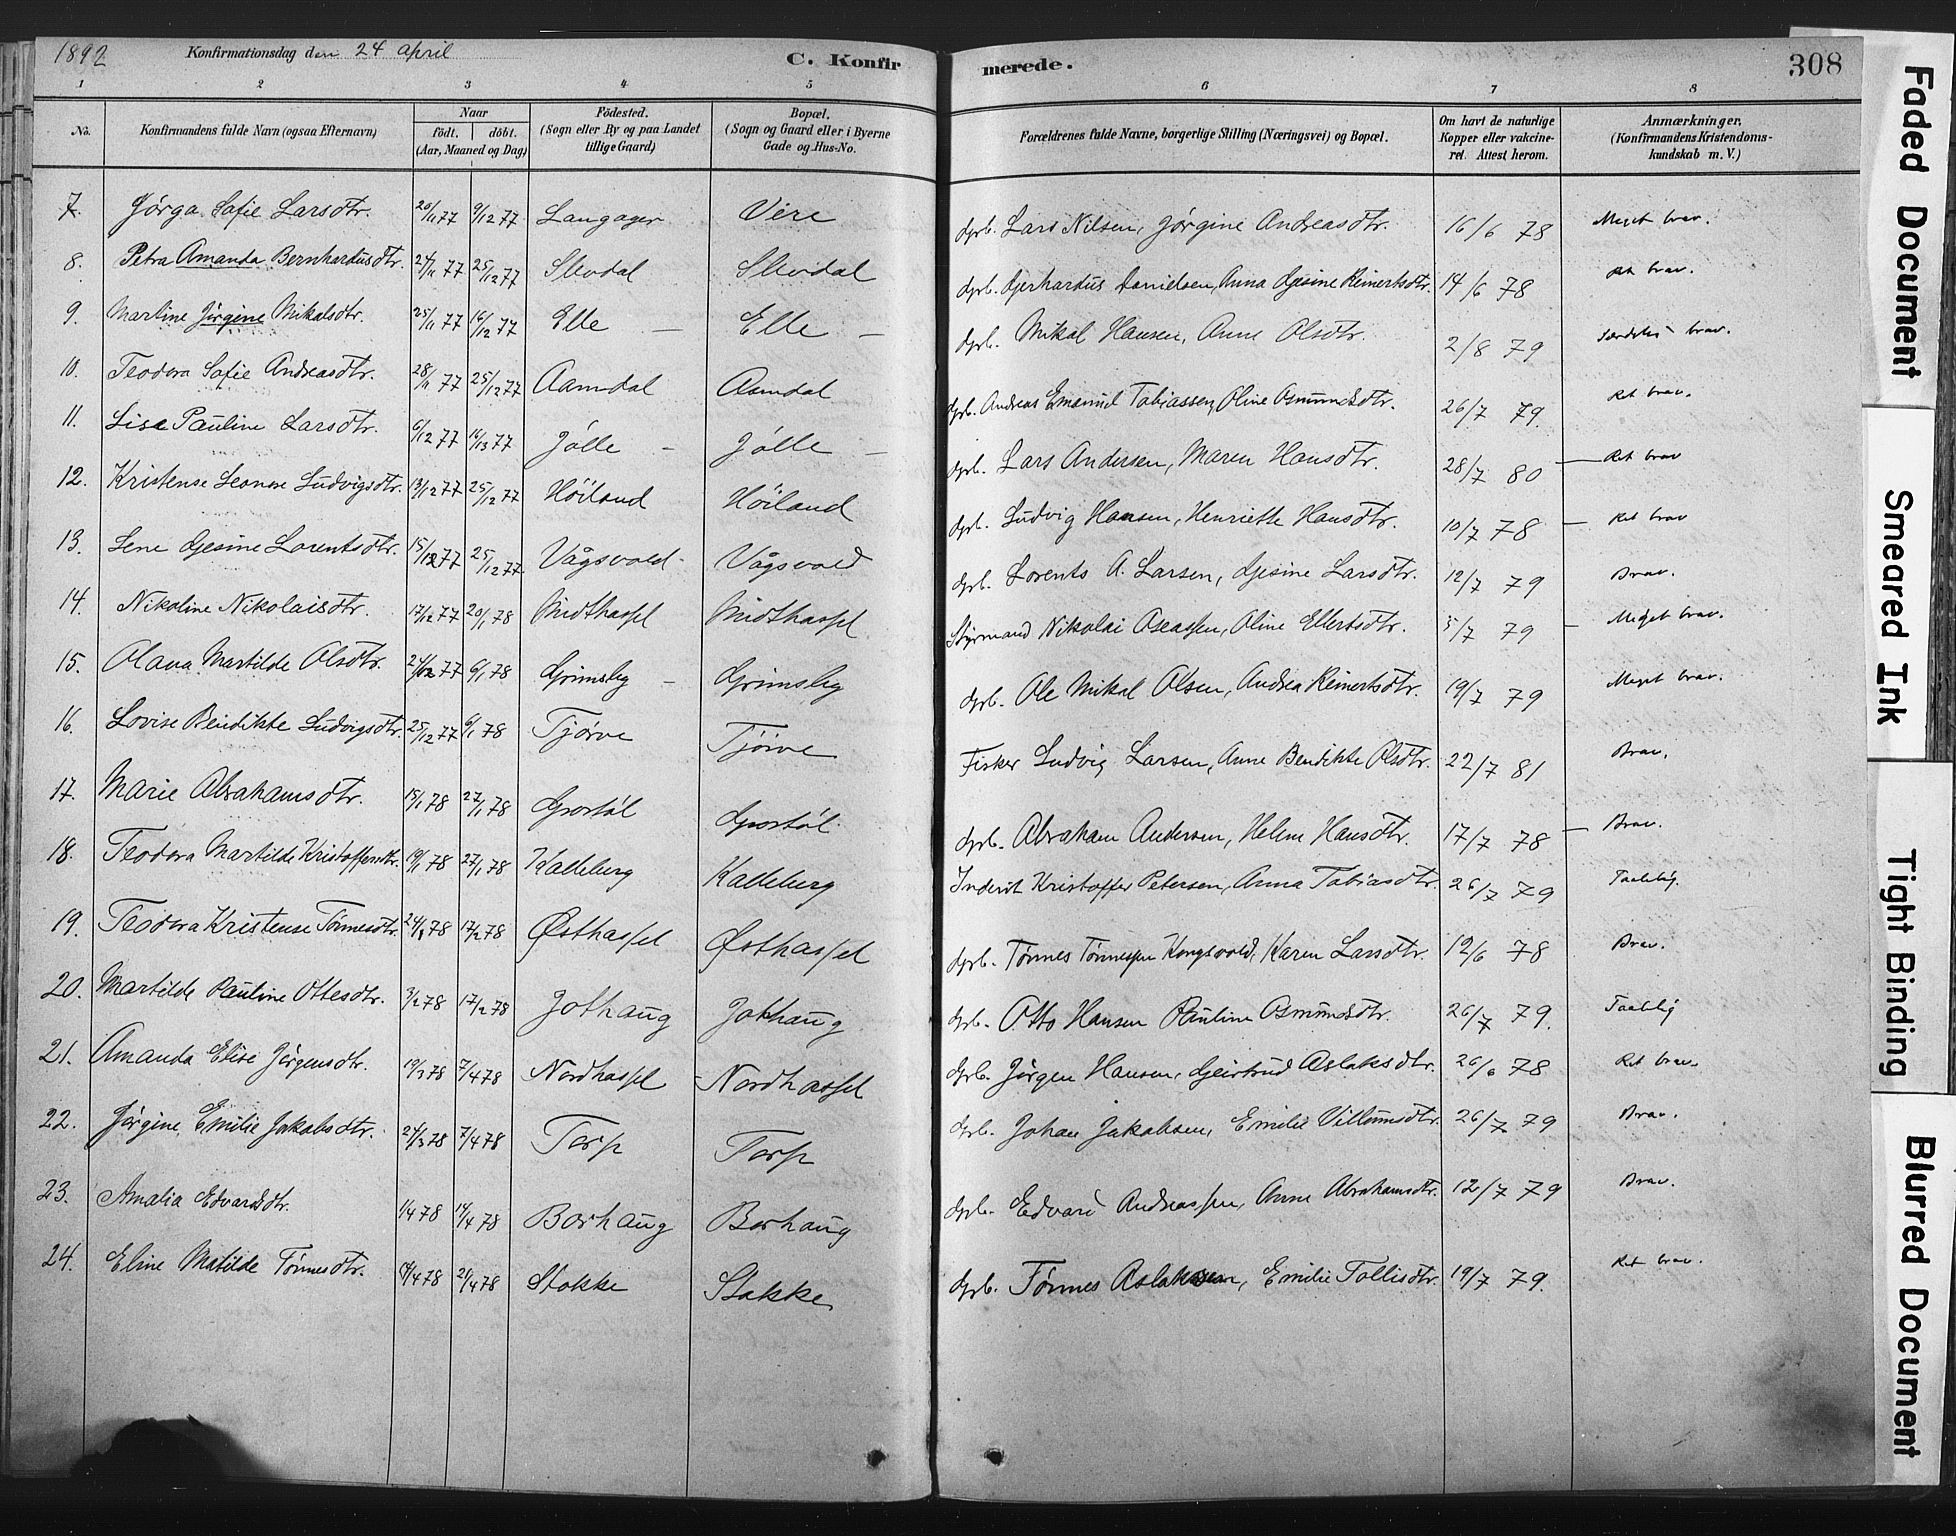 1892 Konfirmationsdag den 24 april C. Konfirmerede. 308
1 2 3 4 5 6 7 8
No. Konfirmandens fulde Navn (ogsaa Efternavn) Naar født. døbt. (Aar, Maaned og Dag) Fødested. (Sogn eller By og paa Landet tillige Gaard) Bopæl. (Sogn og Gaard eller i Byerne Gade og Hus-No. Forældrenes fulde Navne, borgerlige Stilling (Næringsvei) og Bopæl. Om havt de naturlige Kopper eller vakcineret. Attest herom. Anmærkninger, (Konfirmandens Kristendomskundskab m. V.)
7. Jørga Sofie Larsdtr. 20/11 77 9/12 77 Langager Vere grb. Lars Nilsen, Jørgine Andreasdtr. 16/6 78 Meget brav.
8. Petra Amanda Bernhardusdtr. 24/11 77 25/12 77 Slevdal Slevdal grb. Gerhardus Danielsen, Anna Gjesine Reinertsdtr. 14/6 78 Ret brav.
9. Martine Jørgine Mikalsdtr. 25/11 77 16/12 77 Elle – Elle – grb. Mikal Hansen, Anne Olsdtr. 2/8 79 Særdeles brav.
10. Teodora Sofie Andreasdtr. 28/11 77 25/12 77 Aamdal Aamdal grb. Andreas Emanuel Tobiassen, Oline Osmundsdtr. 26/7 79. Ret brav.
11. Lise Pauline Larsdtr. 6/12 77 16/13 77 Jølle – Jølle – grb. Lars Andersen, Maren Hansdtr. 28/7 80 – Ret brav
12. Kristense Leonore Ludvigsdtr. 13/12 77 25/12 77 Høiland Høiland grb. Ludvig Hansen, Henriette Hansdtr. 10/7 78 – Ret brav
13. Lene Gjesine Lorentsdtr. 15/12 77 25/12 77 Vågsvold Vågsvold grb. Lorents A. Larsen, Gjesine Larsdtr. 12/7 79 Brav.
14. Nikoline Nikolaisdtr. 17/12 77 20/1 78 Midthassel Midthassel Styrmand Nikolai Oseassen, Oline Ellertsdtr. 5/7 79 – Meget brav.
15. Olava Martilde Olsdtr. 24/12 77 6/1 78 Grimsby – Grimsby grb. Ole Mikal Olsen, Andrea Reinertsdtr. 19/7 79 Meget brav.
16. Lovise Bendikte Ludvigsdtr. 25/12 77 6/1 78 Tjørve Tjørve Fisker Ludvig Larsen, Anne Bendikte Olsdtr. 22/7 81 Brav.
17. Marie Abrahamsdtr. 15/1 78 27/1 78 Gjostøl Gjostøl. grb. Abraham Andersen, Helene Hansdtr. 17/7 78 – Brav.
18. Teodora Martilde Kristoffersdtr. 19/1 78 27/1 78 Kalleberg Kalleberg Inderst Kristoffer Petersen, Anna Tobiasdtr. 26/7 79 Taalelig.
19. Teodora Kristense Tønnesdtr. 24/1 78 17/2 78 Østhassel Østhassel grb. Tønnes Tønnessen Kongsvold, Karen Larsdtr. 12/6 78 Brav.
20. Martilde Pauline Ottesdtr. 3/2 78 17/2 78 Jothaug Jothaug grb. Otto Hansen Pauline Osmundsdtr. 26/7 79. Taalelig
21. Amanda Elise Jørgensdtr. 19/3 78 7/4 78 Nordhassel – Nordhassel grb. Jørgen Hansen, Geirtrud Aslaksdtr. 26/6 78 Ret brav.
22. Jørgine Emilie Jakobsdtr. 24/3 78 7/4 78 Torp Torp grb. Johan Jakobsen, Emilie Villumsdtr. 26/7 79 Brav.
23. Amalia Edvardsdtr. 1/4 78 14/4 78 Borhaug Borhaug grb. Edvard Andreassen, Anne Abrahamsdtr. 12/7 79 Brav.
24. Eline Matilde Tønnesdtr. 4/4 78 21/4 78 Stokke Stokke grb. Tønnes Aslaksen, Emilie Tollisdtr. 19/7 79. Ret brav.
Faded Document
Smeared Ink
Tight Binding
Blurred Document